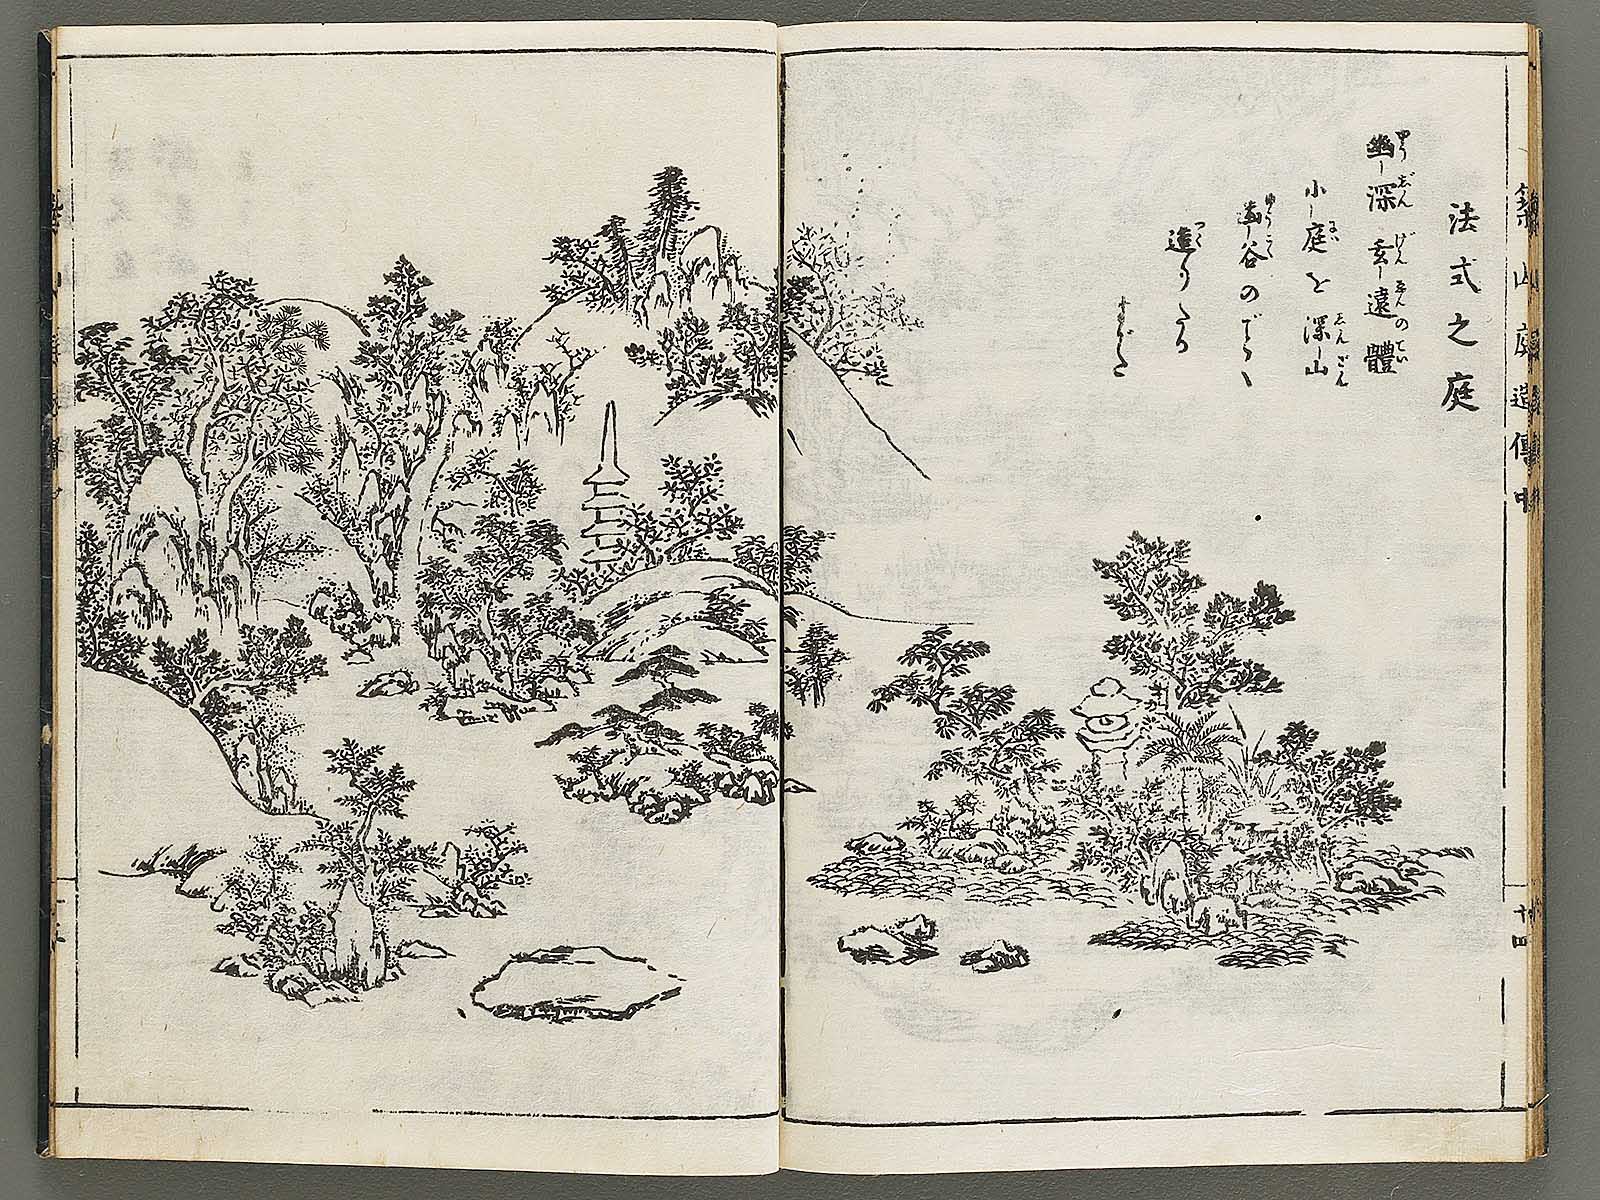 築山庭造傳 中
十四
法式之庭
幽深玄遠の體
小庭を深山
幽谷のごとく
造りたる
すがた